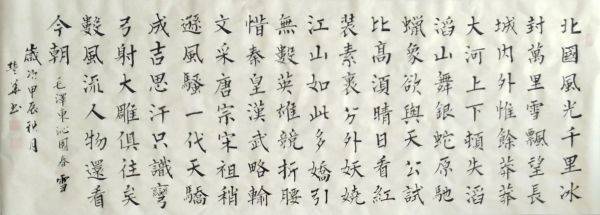 北國風光千里冰
封萬里雪飄望長
城內外惟餘莽莽
大河上下頓失滔
滔山舞銀蛇原馳
蠟象欲與天公試
比高須晴日看紅
裝素裹分外妖嬈
江山如此多嬌引
無數英雄競折腰
惜秦皇漢武略輸
文采唐宗宋祖稍
遜風騷一代天驕
成吉思汗只識彎
弓射大雕俱往矣
數風流人物還看
今朝
毛澤東沁園春雪
歲次甲辰秋月